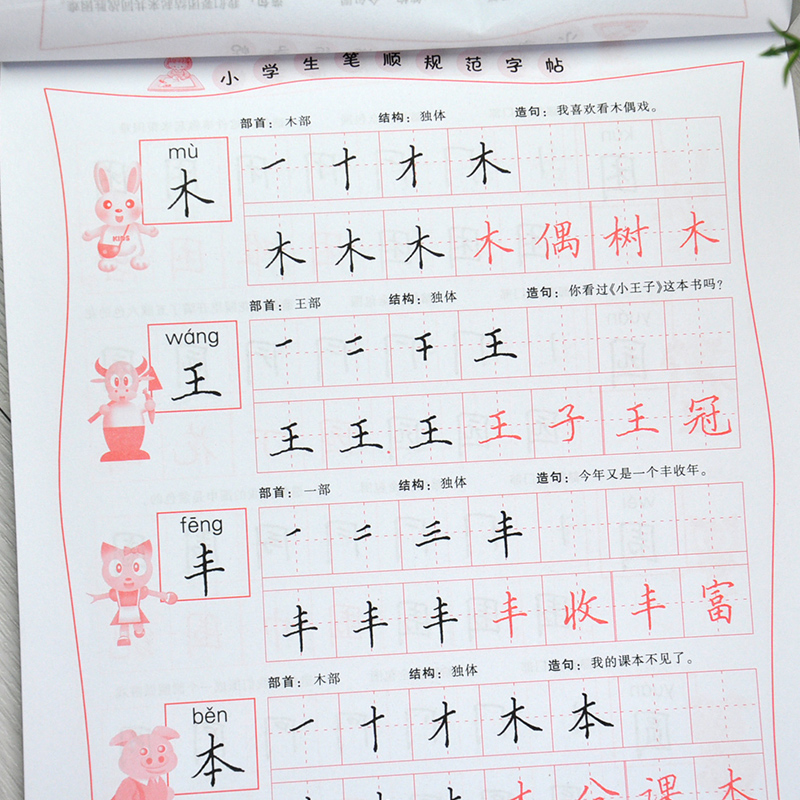 小学生笔顺规范字帖
部首：木部 结构：独体 造句：我喜欢看木偶戏。
mù
木 一 十 才 木
木 木 木 木 偶 树 木
部首：王部 结构：独体 造句：你看过《小王子》这本书吗？
wáng
王 一 二 干 王
王 王 王 王 子 王 冠
部首：一部 结构：独体 造句：今年又是一个丰收年。
fēng
丰 一 二 三 丰
丰 丰 丰 丰 收 丰 富
部首：木部 结构：独体 造句：我的课本不见了。
běn
本 一 十 才 木 本